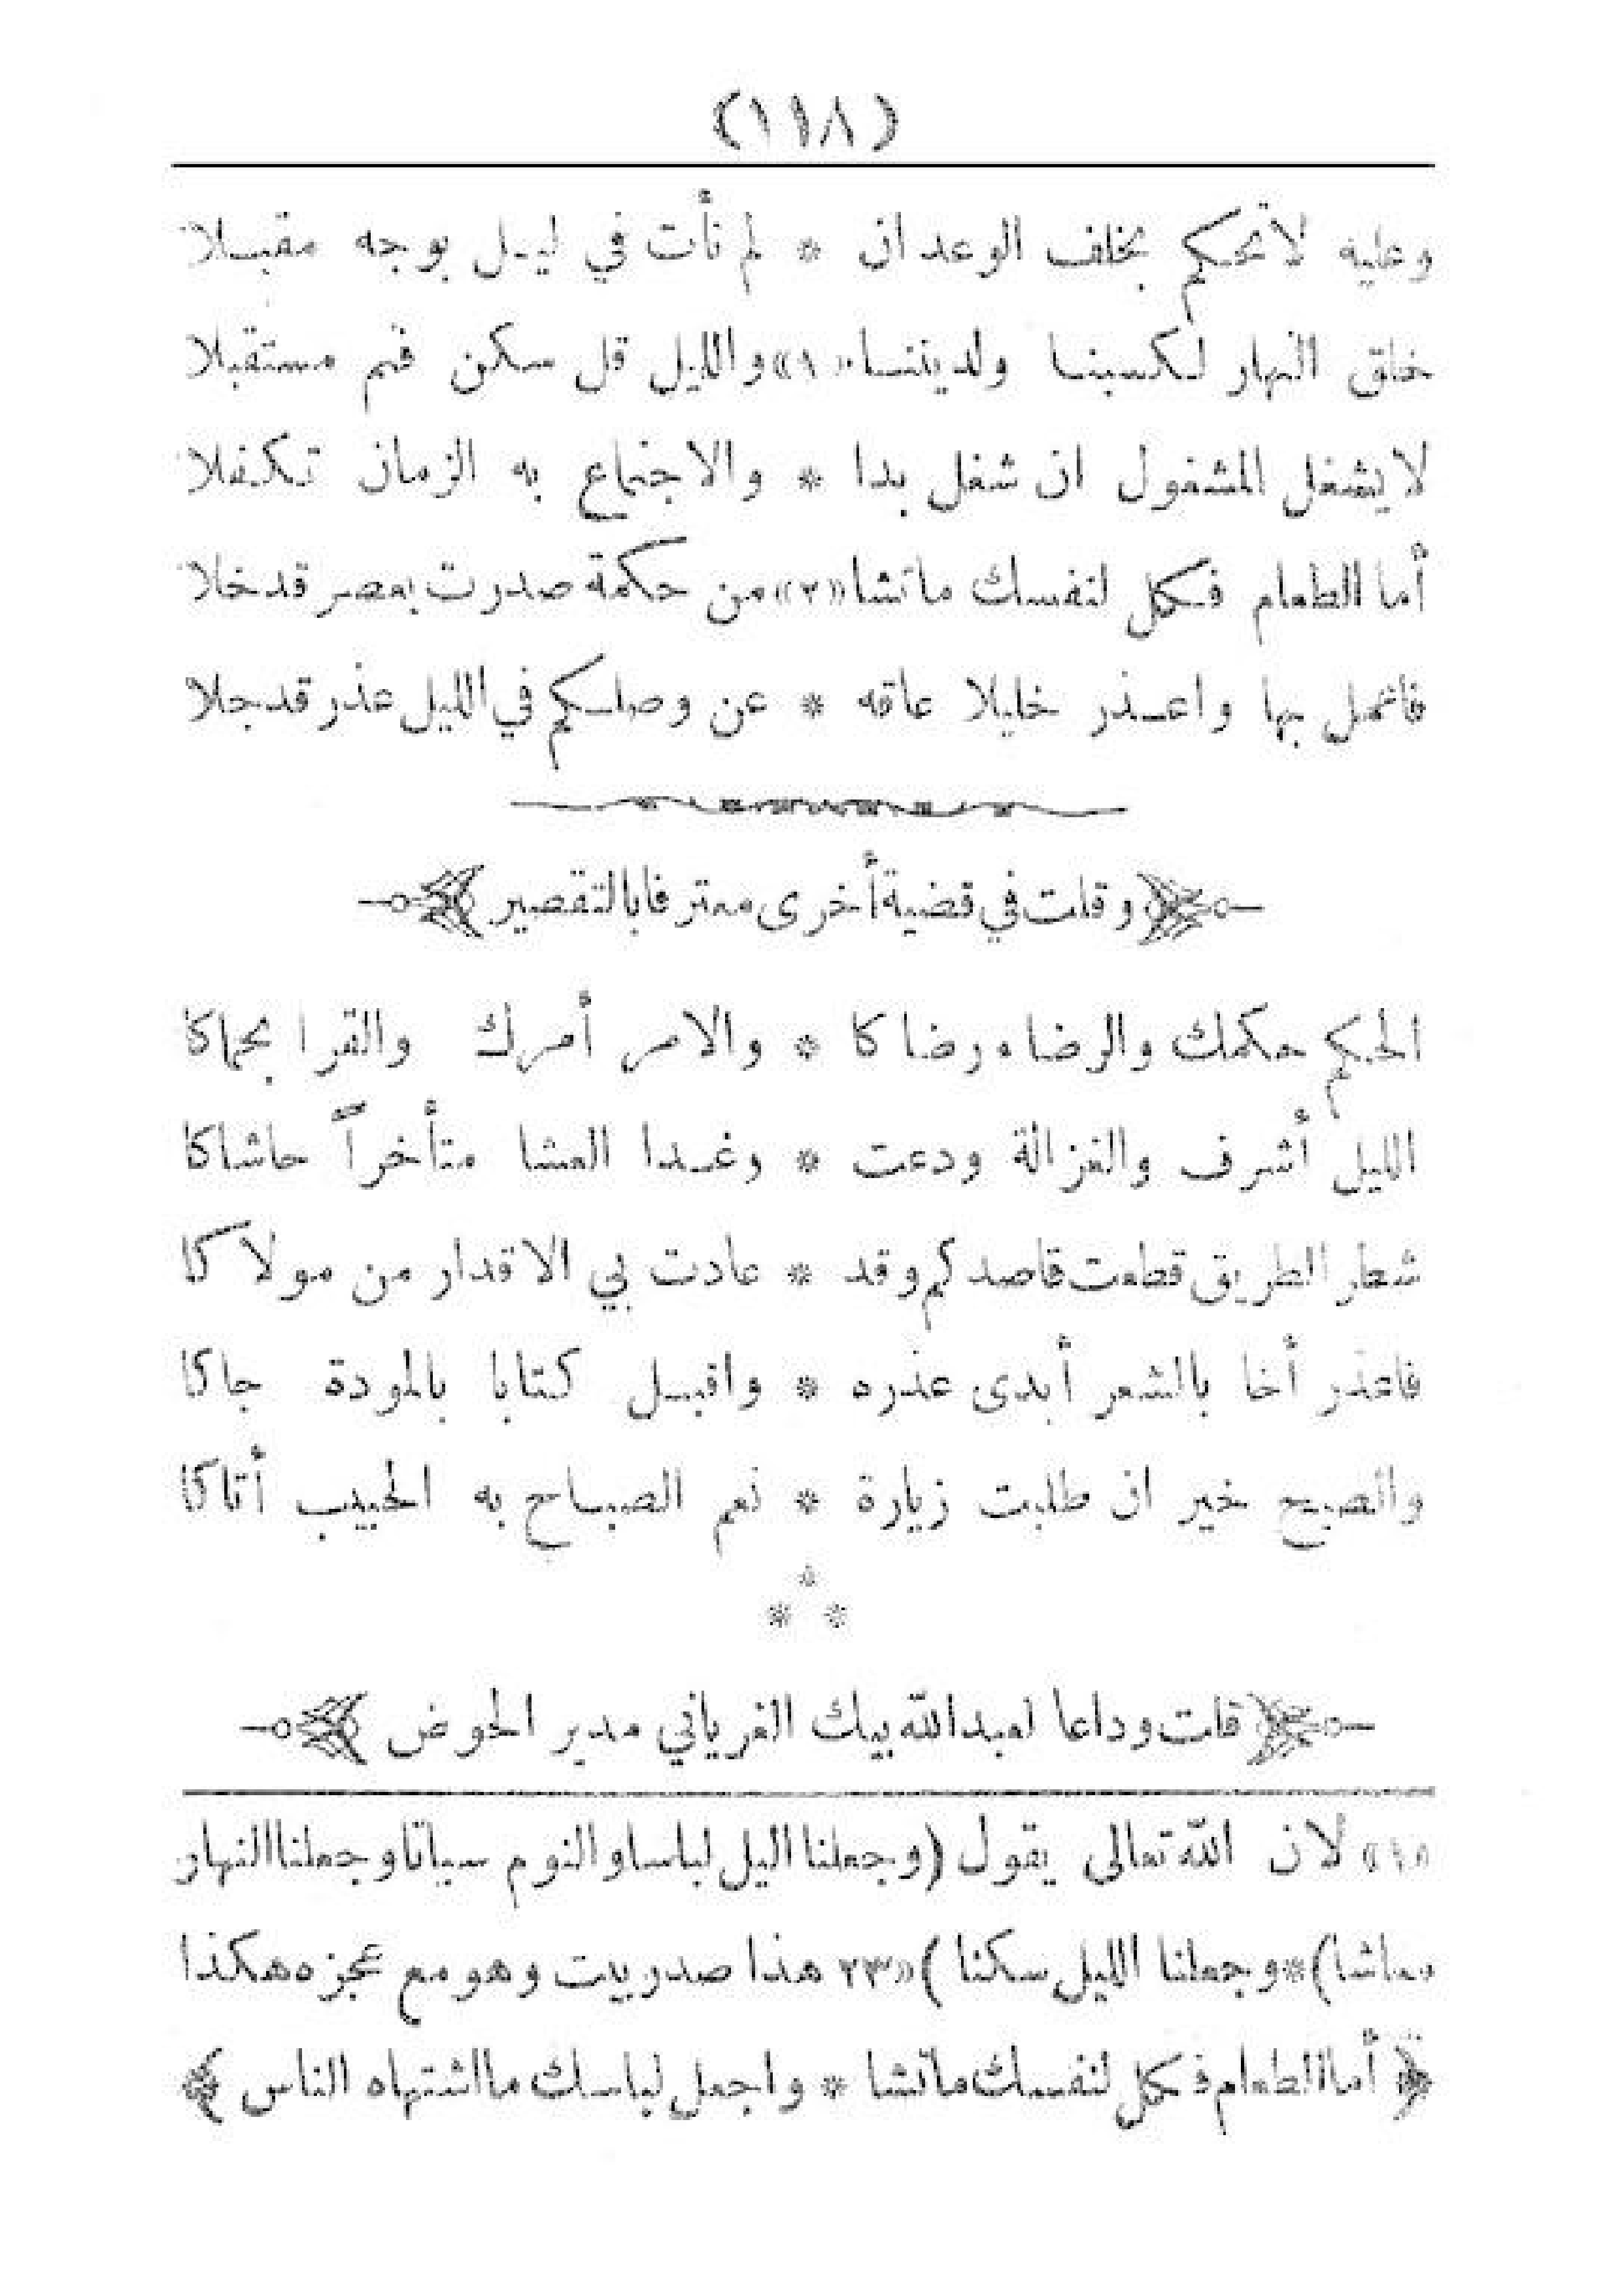 (١١٨)
وعليه لا تحكم بخلف الوعد ان * لم نأت في ليل بوجه مقبلا
خلق النهار لكسبنا ولديننا «١» والليل قل سكن فنم مستقبلا
لا يشغل المشغول ان شغل بدا * والاجتماع به الزمان تكفلا
أما الطعام فكل لنفسك ماتشا «٢» من حكمة صدرت بمصر قد خلا
فاعمل بها واعذر خليلا عاقه * عن وصلكم في الليل عذر قد جلا
وقلت في قضية أخرى معترفا بالتقصير
الحكم حكمك والرضاء رضاكا * والامر أمرك والقرا بحماكا
الليل أشرف والغزالة ودعت * وغدا العشا متأخراً حاشاكا
شعار الطريق قطعت قاصدكم وقد * عادت بي الاقدار من مولاكا
فاعذر أخا بالشعر أبدى عذره * واقبل كتابا بالمودة جاكا
والصبح خير ان طلبت زيارة * نعم الصباح به الحبيب أتاكا
* * *
قلت وداعا لعبد الله بيك الغرياني مدير الحوض
«١» لان الله تعالى يقول (وجعلنا اليل لباسا والنوم سباتا وجعلنا النهار
معاشا) * وجعلنا الليل سكنا) «٢٣ هذا صدر بيت وهو مع عجزه هكذا
﴿ أما الطعام فكل لنفسك ماتشا * واجعل لباسك ما اشتهاه الناس ﴾